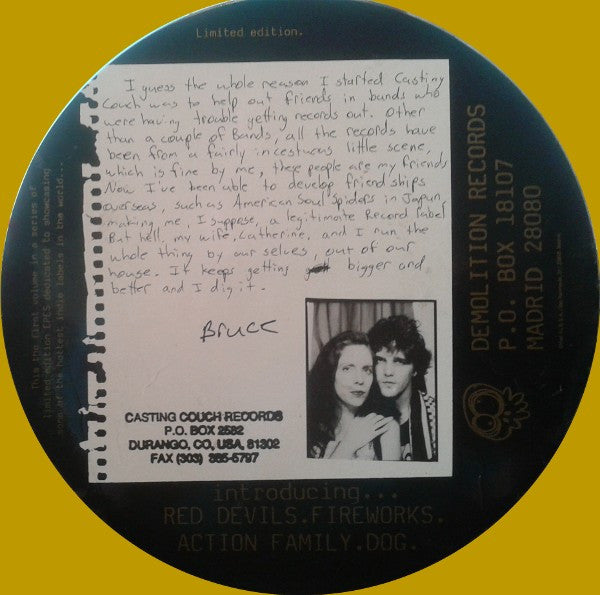 Limited edition.
I guess the whole reason I started Casting
Couch was to help out friends in bands who
were having trouble getting records out. Other
than a couple of Bands, all the records have
been from a fairly incestuous little scene,
which is fine by me, these people are my friends
Now I've been able to develop friendships
overseas, such as American Soul Spiders in Japan,
making me, I suppose, a legitimate Record label
But hell, my wife, Catherine, and I run the
whole thing by our selves, out of our
house. It keeps getting bigger and
better and I dig it.
Bruce
CASTING COUCH RECORDS
P.O. BOX 2582
DURANGO, CO, USA, 81302
FAX (303) 385-5797
This the first volume in a series of
limited edition EPCS dedicated to showcasing
some of the hottest indie labels in the world...
DEMOLITION RECORDS
P.O. BOX 18107
MADRID 28080
introducing...
RED DEVILS.FIREWORKS.
ACTION FAMILY.DOG.